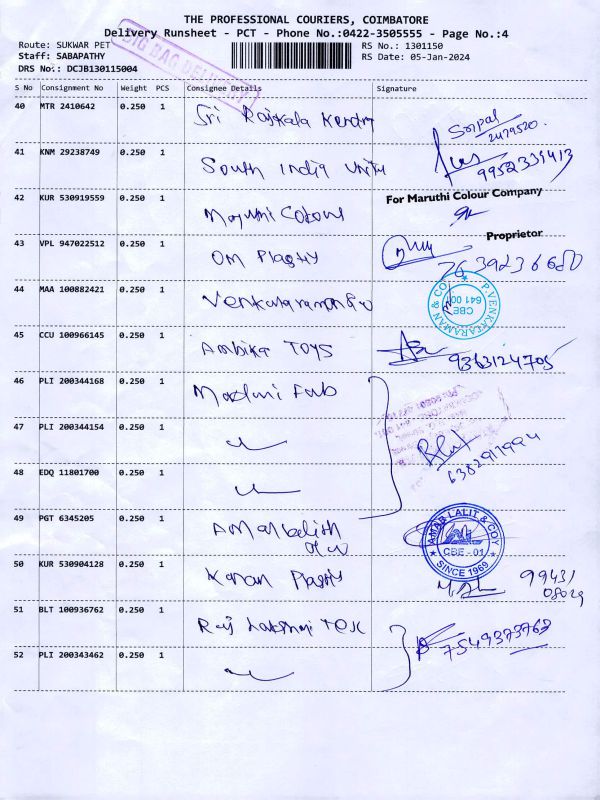 THE PROFESSIONAL COURIERS, COIMBATORE
Delivery Runsheet - PCT - Phone No.:0422-3505555 - Page No.:4
Route: SUKWAR PET
RS No.: 1301150
Staff: SABAPATHY
RS Date: 05-Jan-2024
DRS No.: DCJB130115004
BIG BAG DELIVERY
S No Consignment No Weight PCS Consignee Details Signature
40 MTR 2410642 0.250 1 Sri Rajkala Kendra
2479520
41 KNM 29238749 0.250 1 South India Unity
9952339413
42 KUR 530919559 0.250 1 Colour
For Maruthi Colour Company
Proprietor
43 VPL 947022512 0.250 1 OM Plastiy
7639236680
44 MAA 100882421 0.250 1 Venkataraman &
P. VENKATARAMAN & CO
CBE
641 001
45 CCU 100966145 0.250 1 Ambika TOYS
9363124705
46 PLI 200344168 0.250 1 Fab
47 PLI 200344154 0.250 1
6382917994
48 EDQ 11801700 0.250 1
49 PGT 6345205 0.250 1 Amarlalith
AMAR LALIT & COY
CBE - 01
SINCE 1969
50 KUR 530904128 0.250 1 Kanan Plastiy
99431
08029
51 BLT 100936762 0.250 1 Raj Lakshmi Tex
7549373768
52 PLI 200343462 0.250 1